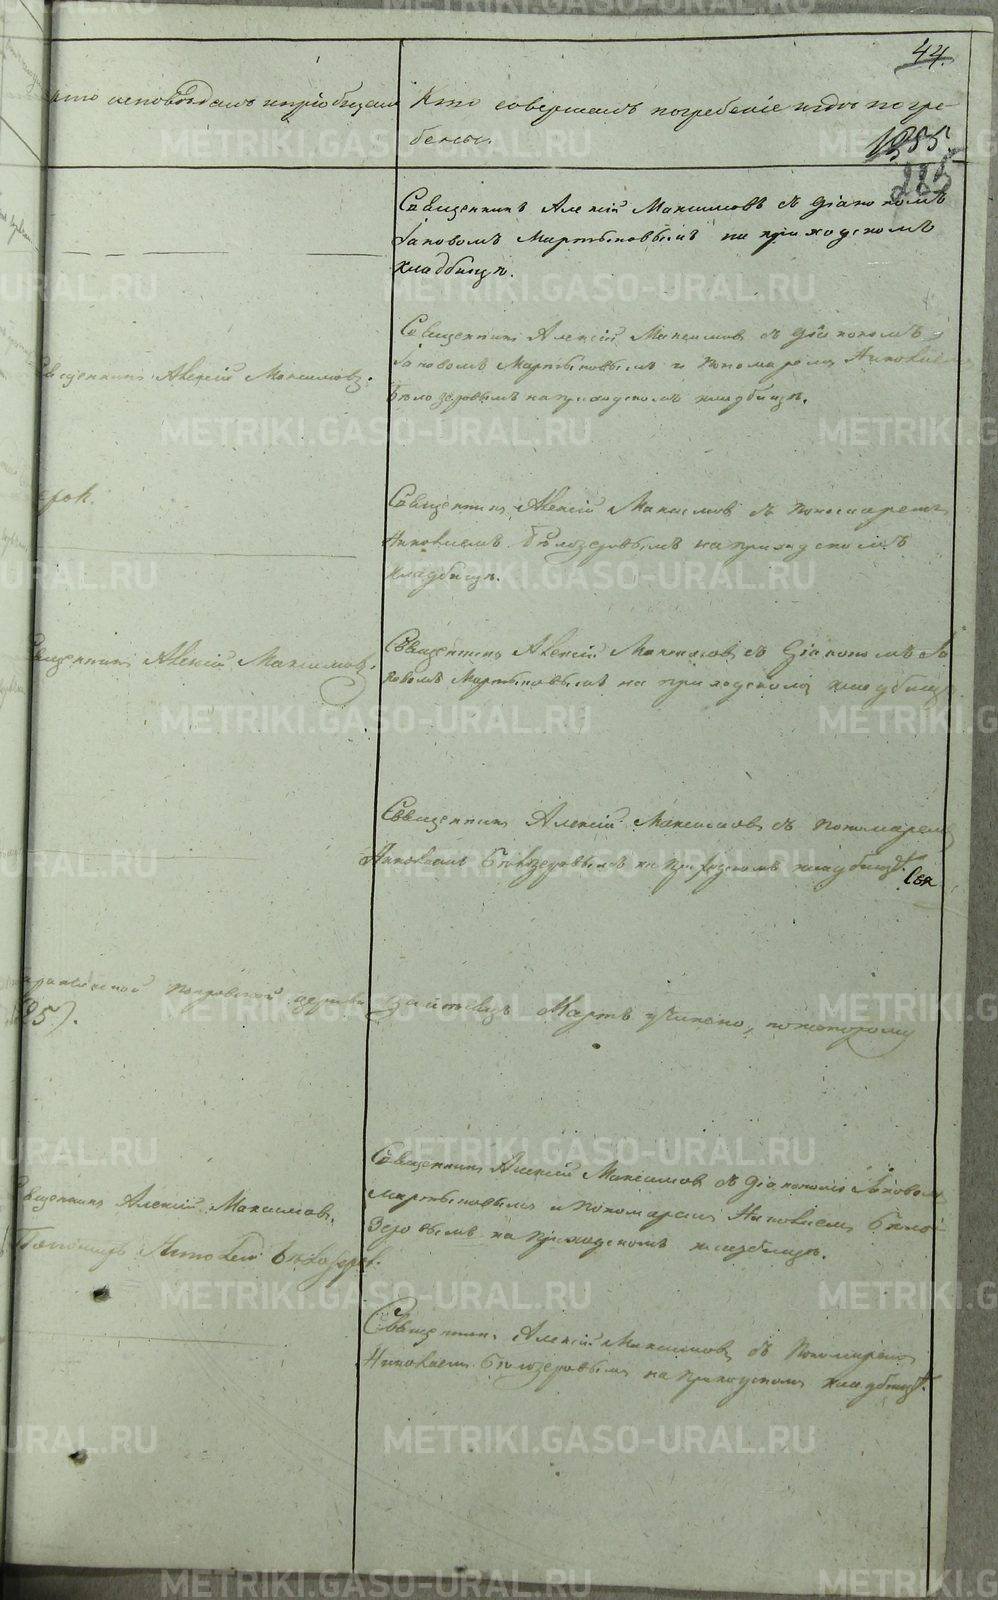 44.
кто исповѣдалъ и приобщалъ
Кто совершалъ погребеніе и гдѣ погре-
бены.
1385.
285
Священникъ Алексій Максимовъ съ діакономъ
Іаковомъ Мартыновымъ на приходскомъ
кладбищѣ.
Священникъ Алексій Максимовъ.
Священникъ Алексій Максимовъ съ діакономъ
Іаковомъ Мартыновымъ и Пономаремъ Николаемъ
Бѣлозеровымъ на приходскомъ кладбищѣ.
Священникъ Алексій Максимовъ съ Пономаремъ
Николаемъ Бѣлозеровымъ на приходскомъ
кладбищѣ.
Священникъ Алексій Максимовъ.
Священникъ Алексій Максимовъ съ Діакономъ Іа
ковомъ Мартыновымъ на приходскомъ кладбищѣ
Священникъ Алексій Максимовъ съ Пономаремъ
Николаемъ Бѣлозеровымъ на приходскомъ кладбищѣ.
Покровской
Мартъ учинено, по которому
25).
Священникъ Алексій Максимовъ съ Діакономъ Іаковомъ
Мартыновымъ и Пономаремъ Николаемъ Бѣло-
зеровымъ на Приходскомъ кладбищѣ.
Священникъ Алексій Максимовъ.
Священникъ Алексій Максимовъ съ Пономаремъ
Николаемъ Бѣлозеровымъ на Приходскомъ кладбищѣ.
METRIKI.GASO-URAL.RU